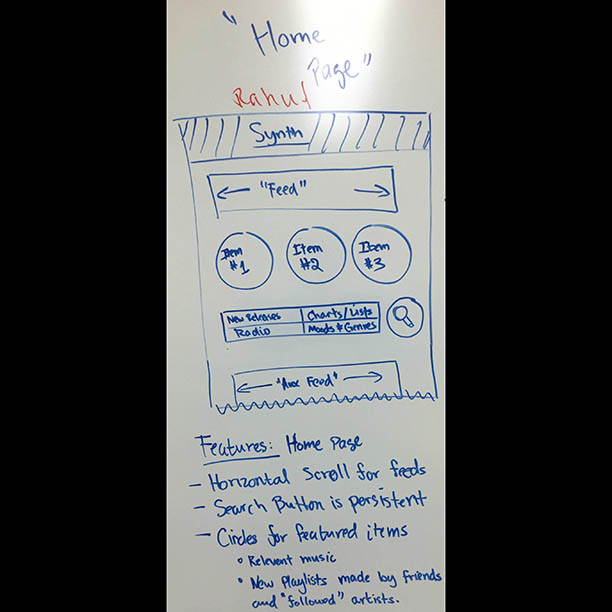 "Home
Page"
Rahul
Synth
"Feed"
Item
#1
Item
#2
Item
#3
New Releases
Charts/Lists
Radio
Moods & Genres
"Aux Feed"
Features: Home Page
- Horizontal Scroll for feeds
- Search Button is persistent
- Circles for featured items
° Relevent music
° New Playlists made by friends
and "followed" artists.